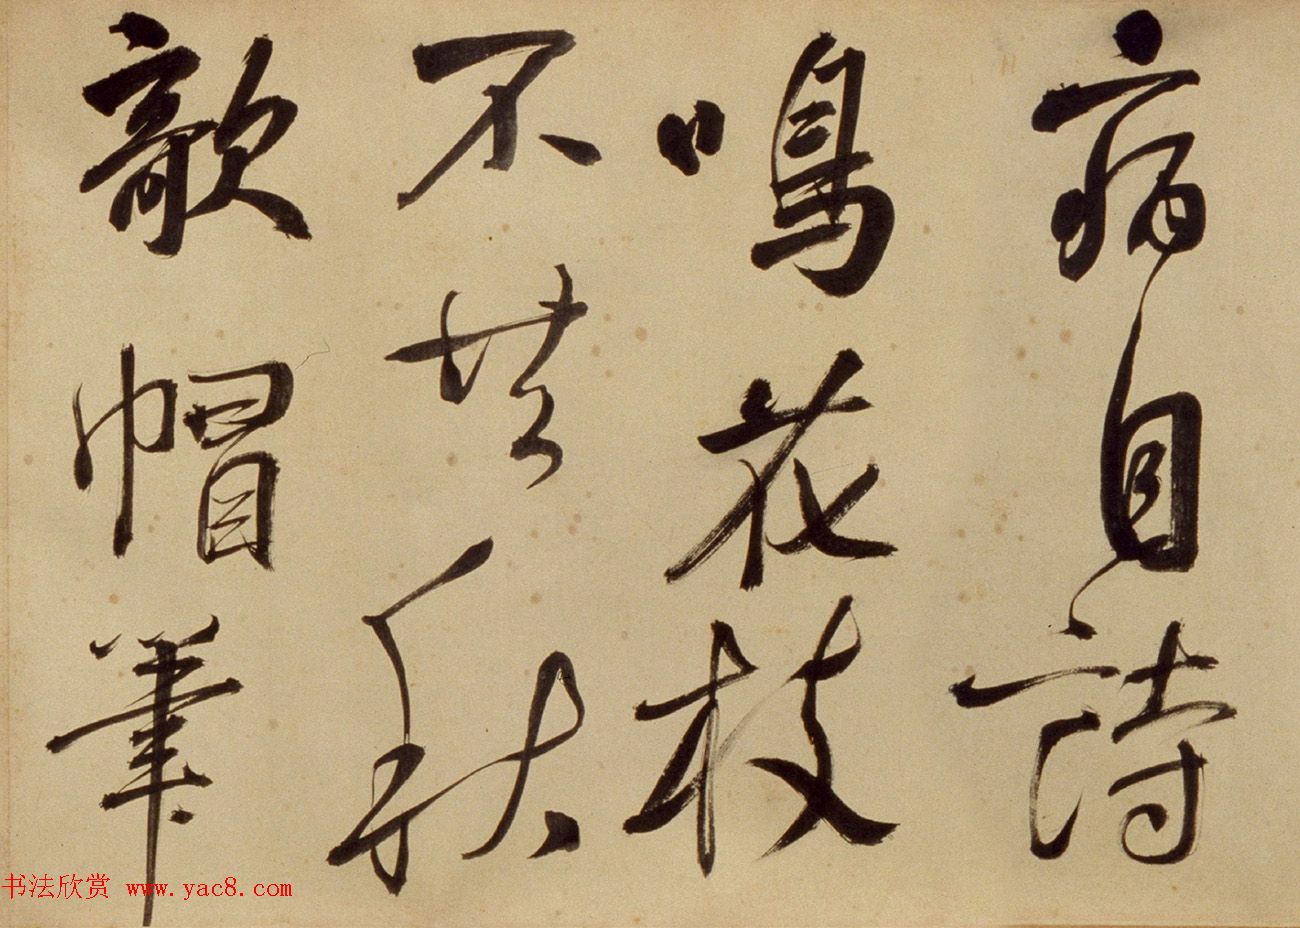 病自詩
鳴花枝
不共秋
欹帽筆
书法欣赏 www.yac8.com